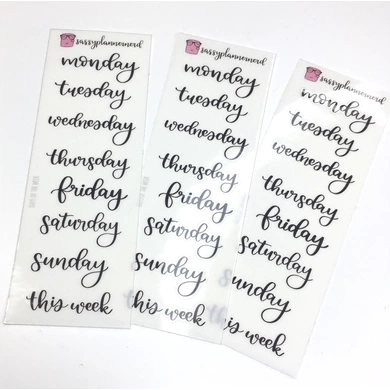 sassyplannernerd
monday
tuesday
wednesday
thursday
friday
saturday
sunday
this week
sassyplannernerd
monday
tuesday
wednesday
thursday
friday
saturday
sunday
this week
sassyplannernerd
monday
tuesday
wednesday
thursday
friday
saturday
sunday
this week